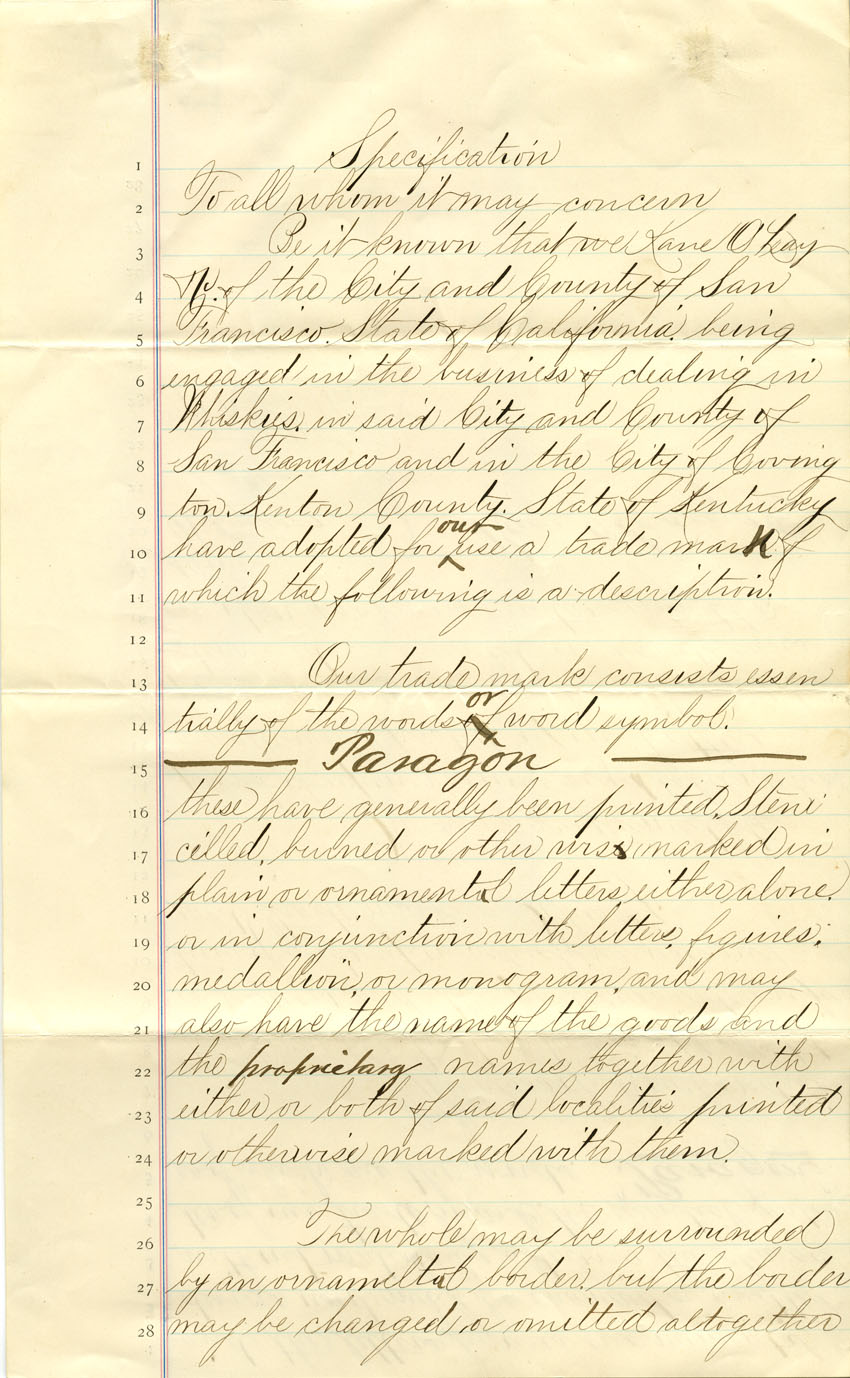 1 Specification
2 To all whom it may concern
3 Be it known that we Kane O'Leary
4 & Co. of the City and County of San
5 Francisco. State of California. being
6 engaged in the business of dealing in
7 Whiskies. in said City and County of
8 San Francisco and in the City of Coving
9 ton. Kenton County. State of Kentucky
10 have adopted for our use a trade mark of
11 which the following is a description.
12
13 Our trade mark consists essen
14 tially of the words or word symbol.
15 Paragon
16 these have generally been printed, Sten
17 cilled, burned or other wise marked in
18 plain or ornamental letters, either alone.
19 or in conjunction with letters, figures,
20 medallion, or monogram, and may
21 also have the name of the goods and
22 the proprietary names together with
23 either or both of said localities printed
24 or otherwise marked with them.
25
26 The whole may be surrounded
27 by an ornameltal border. but the border
28 may be changed or omitted altogether